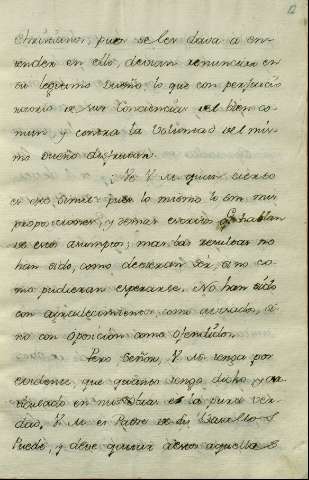 12
Christianos, pues se les dava à en-
tender en ello, devian renunciar en
su legitimo Dueño, lo que con perjuicio
notorio de sus Conciencias, del bien co-
mun, y contra la Voluntad del mis-
mo Dueño disfrutan.
V. M. quiza cierto
es oyo pues lo mismo lo son mis
proposiciones, y demas escritos q.e hablan
de esos asumptos; mas las resultas no
han sido, como devieran ser, sino co-
mo pudieran esperarse. No han sido
con agradecimientos, como avisados, si-
no con oposicion como ofendidos.
Pero Señor, V. M. tenga por
evidente, que quanto tengo dicho, y ar-
ticulado en mis Obras es la pura ver-
dad. V. M. es Padre de sus Vasallos
Puede, y deve quitar de aquellos